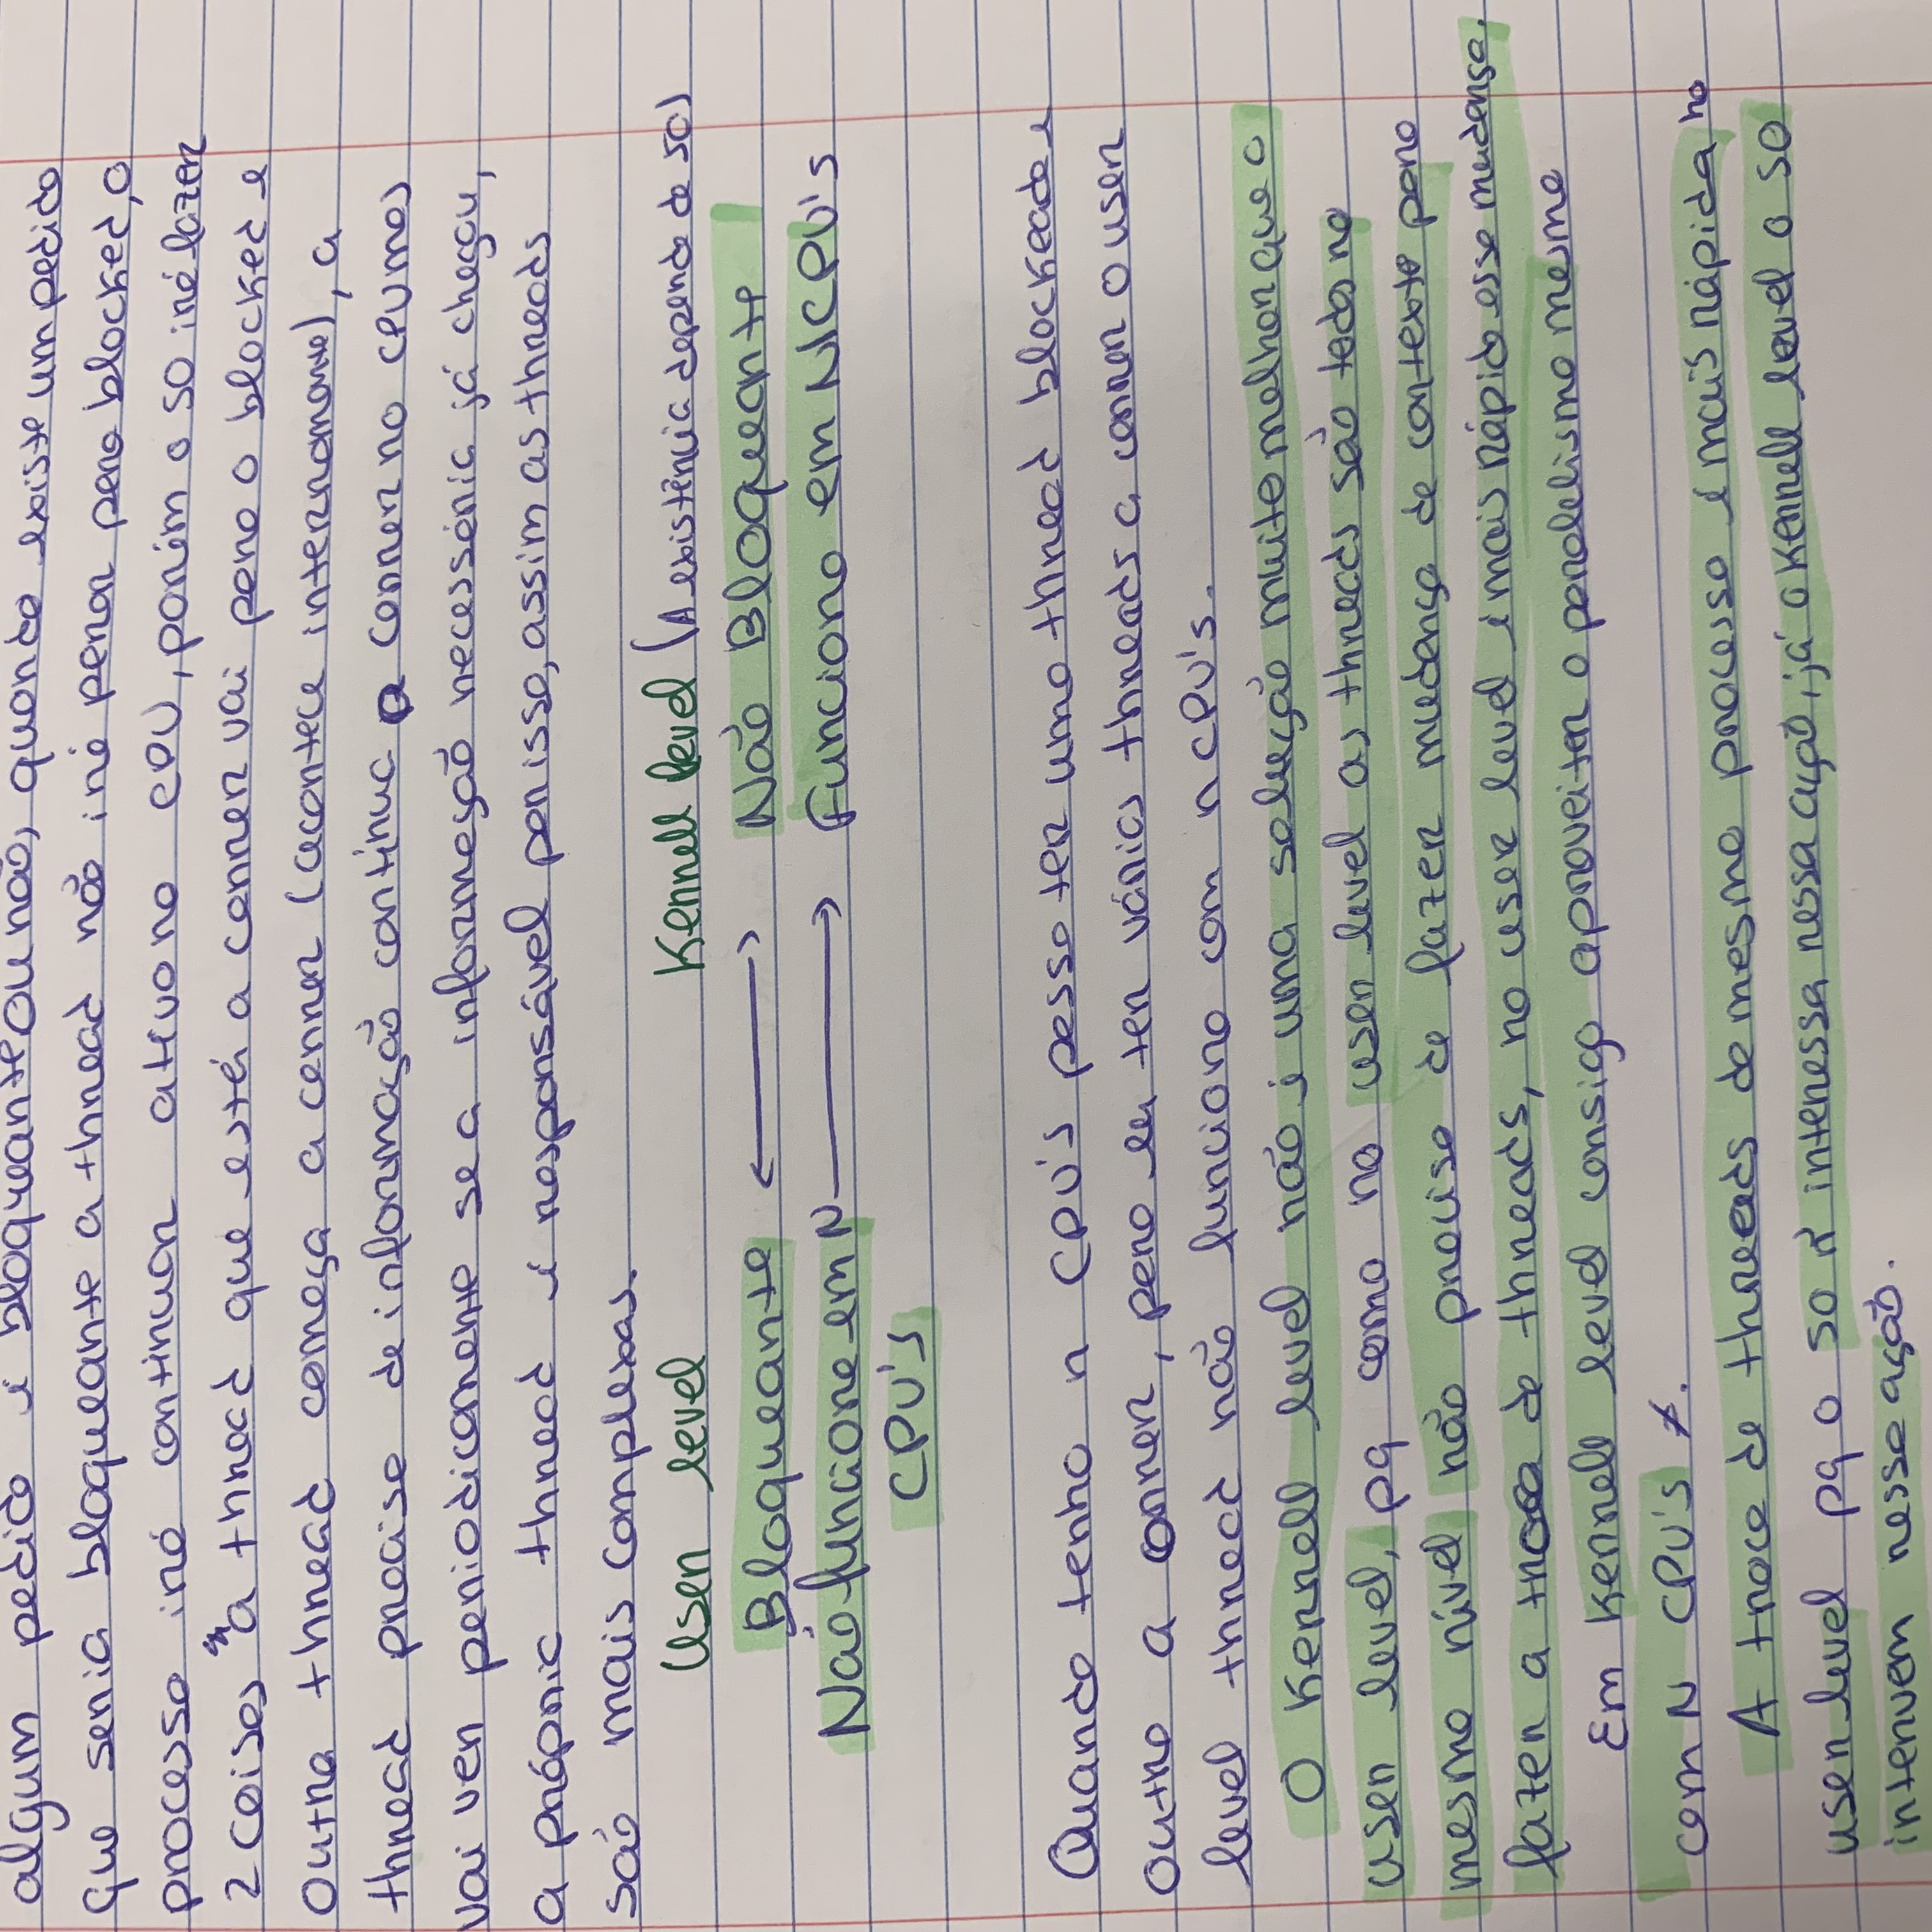 algum pedido é bloqueante ou não, quando existe um pedido
que seria bloqueante a thread não irá parar para blocked, o
processo irá continuar ativo no CPU, porém o SO irá fazer
2 coisas a thread que está a correr vai para o blocked e
outra thread começa a correr (acontece internamente), a
thread precisa de informação continua a correr no CPU mas
vai ver periodicamente se a informação necessária já chegou,
a própria thread é responsável por isso, assim as threads
são mais complexas.
User level Kernell level (A existência depende do SO)
Bloqueante ⟷ Não Bloqueante
Não funciona em N ⟶ Funciona em N CPU's
CPU's
Quando tenho n CPU's posso ter uma thread blockeada e
outra a correr, para eu ter várias threads a correr o user
level thread não funciona com n CPU's.
O Kernell level não é uma solução muito melhor que o
user level, pq como no user level as threads são todas no
mesmo nível não preciso de fazer mudança de contexto para
fazer a troca de threads, no user level é mais rápido essa mudança.
Em Kernell level consigo aproveitar o paralelismo mesmo
com N CPU's ≠.
A troca de threads do mesmo processo é mais rápida no
user level pq o SO ñ interessa nessa ação, já o Kernell level o SO
intervem nessa ação.